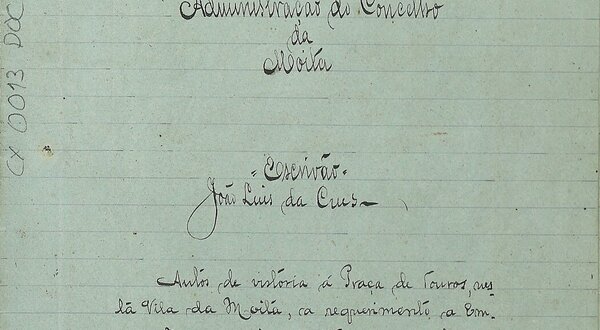 Administração do Concelho
da
Moita
CX 0013 DOC
"Escrivão"
João Luis da Cruz
Autos de vistoria á Praça de Touros, nes
ta Vila da Moita, a requerimento a Em-